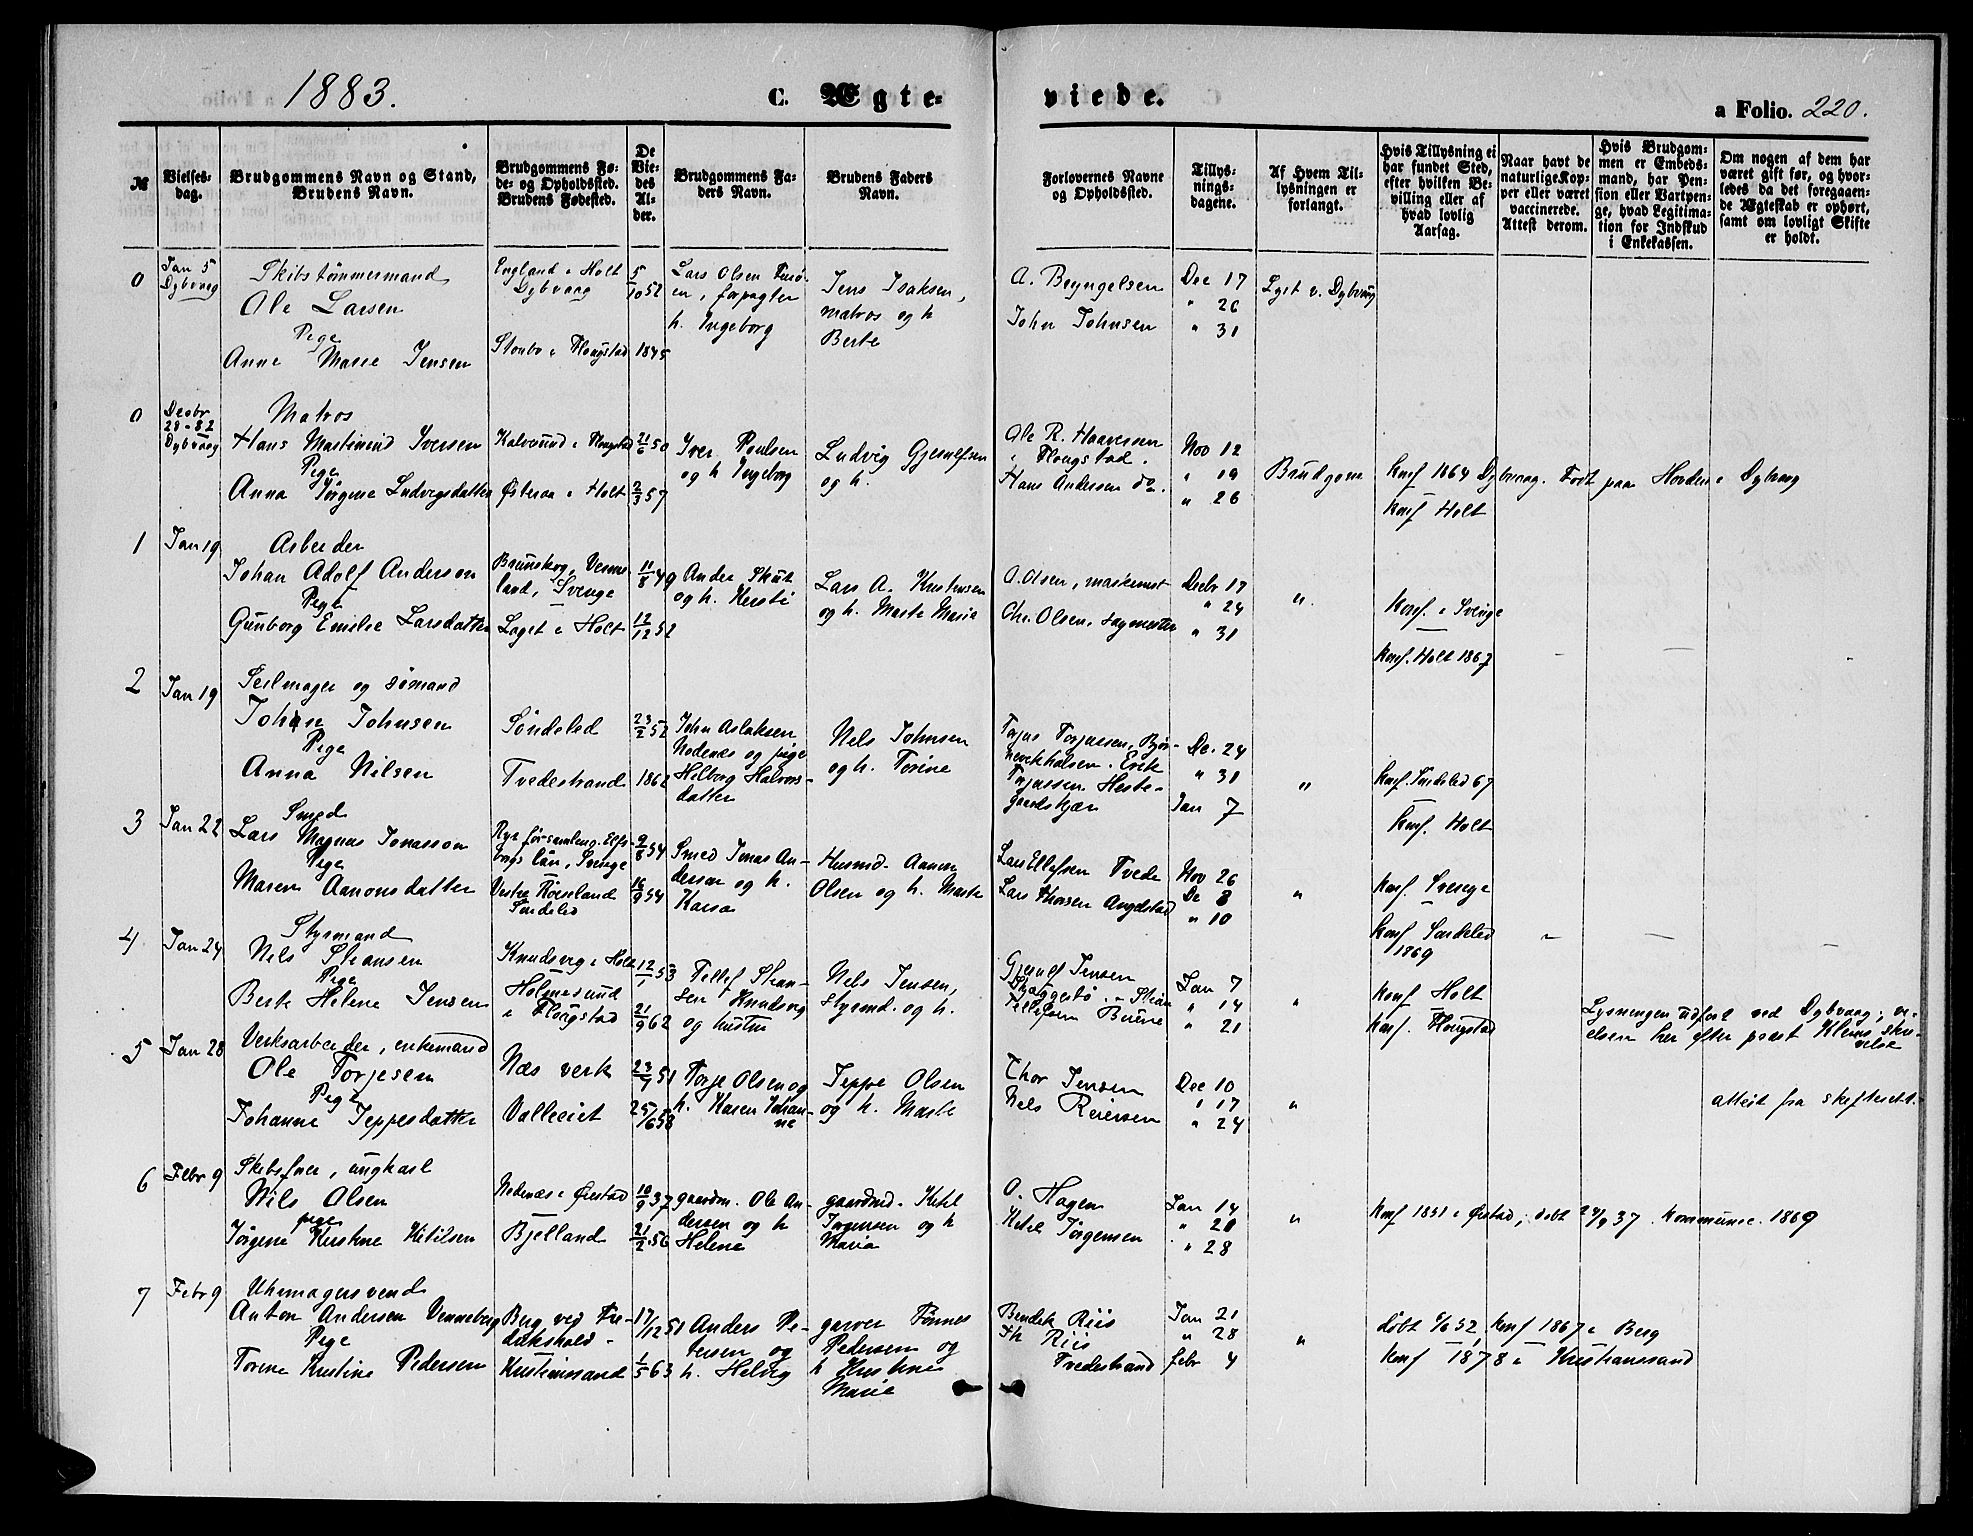 1883.
C. Ægte-
viede.
a Folio. 220.
№
Vielses-
dag.
Brudgommens Navn og Stand,
Brudens Navn.
Brudgommens Fø-
de- og Opholdssted.
Brudens Fødested.
De
Vie-
des
Al-
der.
Brudgommens Fa-
ders Navn.
Brudens Faders
Navn.
Forlovernes Navne
og Opholdssted.
Tillys-
nings-
dagene.
Af Hvem Til-
lysningen er
forlangt.
Hvis Tillysning ei
har fundet Sted,
efter hvilken Be-
villing eller af
hvad lovlig
Aarsag.
Naar havt de
naturlige Kop-
per eller været
vaccinerede.
Attest derom.
Hvis Brudgom-
men er Embeds-
mand, har Pen-
sion eller Vartpen-
ge, hvad Legitima-
tion for Indskud
i Enkekassen.
Om nogen af dem har
været gift før, og hvor-
ledes da det foregaaen-
de Ægteskab er ophørt,
samt om lovligt Skifte
er holdt.
0
Jan 5
Dybvaag
Skibstømmermand
Ole Larsen
Pige
Anne Marie Jensen
England i Holt
Dybvaag
Stenbo i Flougstad
5/10 52
1845
Lars Olsen
forpagter
h. Ingeborg
Jens Isaksen,
matros og h
Berte
A. Bryngelsen
John Johnsen
Dec 17
" 26
" 31
Lyst v. Dybvaag
0
Decbr
28-82
Dybvaag
Matros
Hans Martinius Iversen
Pige
Anna Jørgine Ludvigsdatter
Kalvsund i Flougstad
Østeraa i Holt
21/6 50
2/3 57
Iver Poulsen
og h Ingeborg
Ludvig Gjerulfsen
og h.
Ole R. Haaversen
i Flougstad.
Hans Andersen do.
Nov 12
" 19
" 26
Brudgom
Konf 1864 Dybvaag. Født paa Hovden i Dybvaag
Konf Holt
1
Jan 19
Arbeider
Johan Adolf Anderson
Pige
Gunborg Emilie Larsdatter
Brunskog, Verme-
land, Sverige
Laget i Holt
11/8 49
12/12 52
Ander Skut
og h. Kersti
Lars A. Kristensen
og h. Marte Maria
O. Olsen, maskinist
Chr. Olsen, sagmester
Decbr 17
" 24
" 31
"
Konf. i Sverige
Konf. Holt 1867
2
Jan 19
Seilmager og sømand
Johan Johnsen
Pige
Anna Nilsen
Søndeled
Tvedestrand
23/2 52
1862
John Aslaksen
Nedenes og pige
Helborg Halvors-
datter
Nels Johnsen
og h. Torine
Torjus Torjussen, Bjør-
nevikholsen. Erik
Torjussen Heste-
gaardskjær
De. 24
" 31
Jan 7
"
Konf. Søndeled 67
Konf. Holt
3
Jan 22
Smed
Lars Magnus Jonasson
Pige
Maren Aanonsdatter
Rya forsamling. Elfs-
borgs län, Sverige
Vestre Røsland
Søndeled
9/8 54
16/9 54
Smed Jonas An-
derson og h.
Karsa
Husmd. Aanon
Olsen og h. Marte
Lars Ellefsen Tvede
Lars Thorsen Angelstad
Nov 26
De 3
" 10
"
Konf. Sverige
Konf Søndeled
1869
4
Jan 24
Styrmand
Nels Steansen
Pige
Berte Helene Jensen
Knudsvig i Holt
Holmesund
i Flougstad
12/1 53
21/9 62
Tellef Stean-
sen Knudsvig
og hustru
Nels Jensen,
styrmd. og h.
Gjerulf Jensen
Skaggestø. Stian
Tellefsen Buene
Jan 7
" 14
" 21
"
Konf Holt
Konf. Flougstad
Lysningen udført ved Dybvaag; vi-
elsen her efter prost Klems skri-
velse
5
Jan 28
Verksarbeider, enkemand
Ole Torjesen
Pige
Johanne Jeppesdatter
Næs verk
Valleeiet
23/7 51
25/6 58
Torje Olsen og
h. Karen Johan-
ne
Jeppe Olsen
og h. Marte
Thor Jensen
Nels Reiersen
Dec 10
" 17
" 24
"
attest fra skifteret.
6
Febr 9
Skibsfører, ungkarl
Nils Olsen
pige
Jørgine Kirstine Ketilsen
Nedenæs i Øiestad
Bjelland
10/9 37
21/2 56
gaardm. Ole An-
dersen og h
Helene
gaardmd. Ketil
Jørgensen og h
Maria
O. Hagen
Ketil Jørgensen
Jan 14
" 20
" 28
"
Konf 1851 i Øiestad, døbt 24/9 37. Kommunic. 1869
7
Febr 9
Uhrmagersvend
Anton Andersen Venneberg
Pige
Torine Kristine Pedersen
Berg ved Fre-
drikshald.
Kristianssand
17/12 51
1/5 63
Anders Pe-
tersen og
h. Helvig
garver Tønnes
Pedersen og
h Kirstine
Marie
Bendik Riis
Th Riis
Tvedestrand
Jan 21
" 28
febr 4
"
døbt 6/6 52, Konf 1867 i Berg
Konf 1878 i Kristianssand